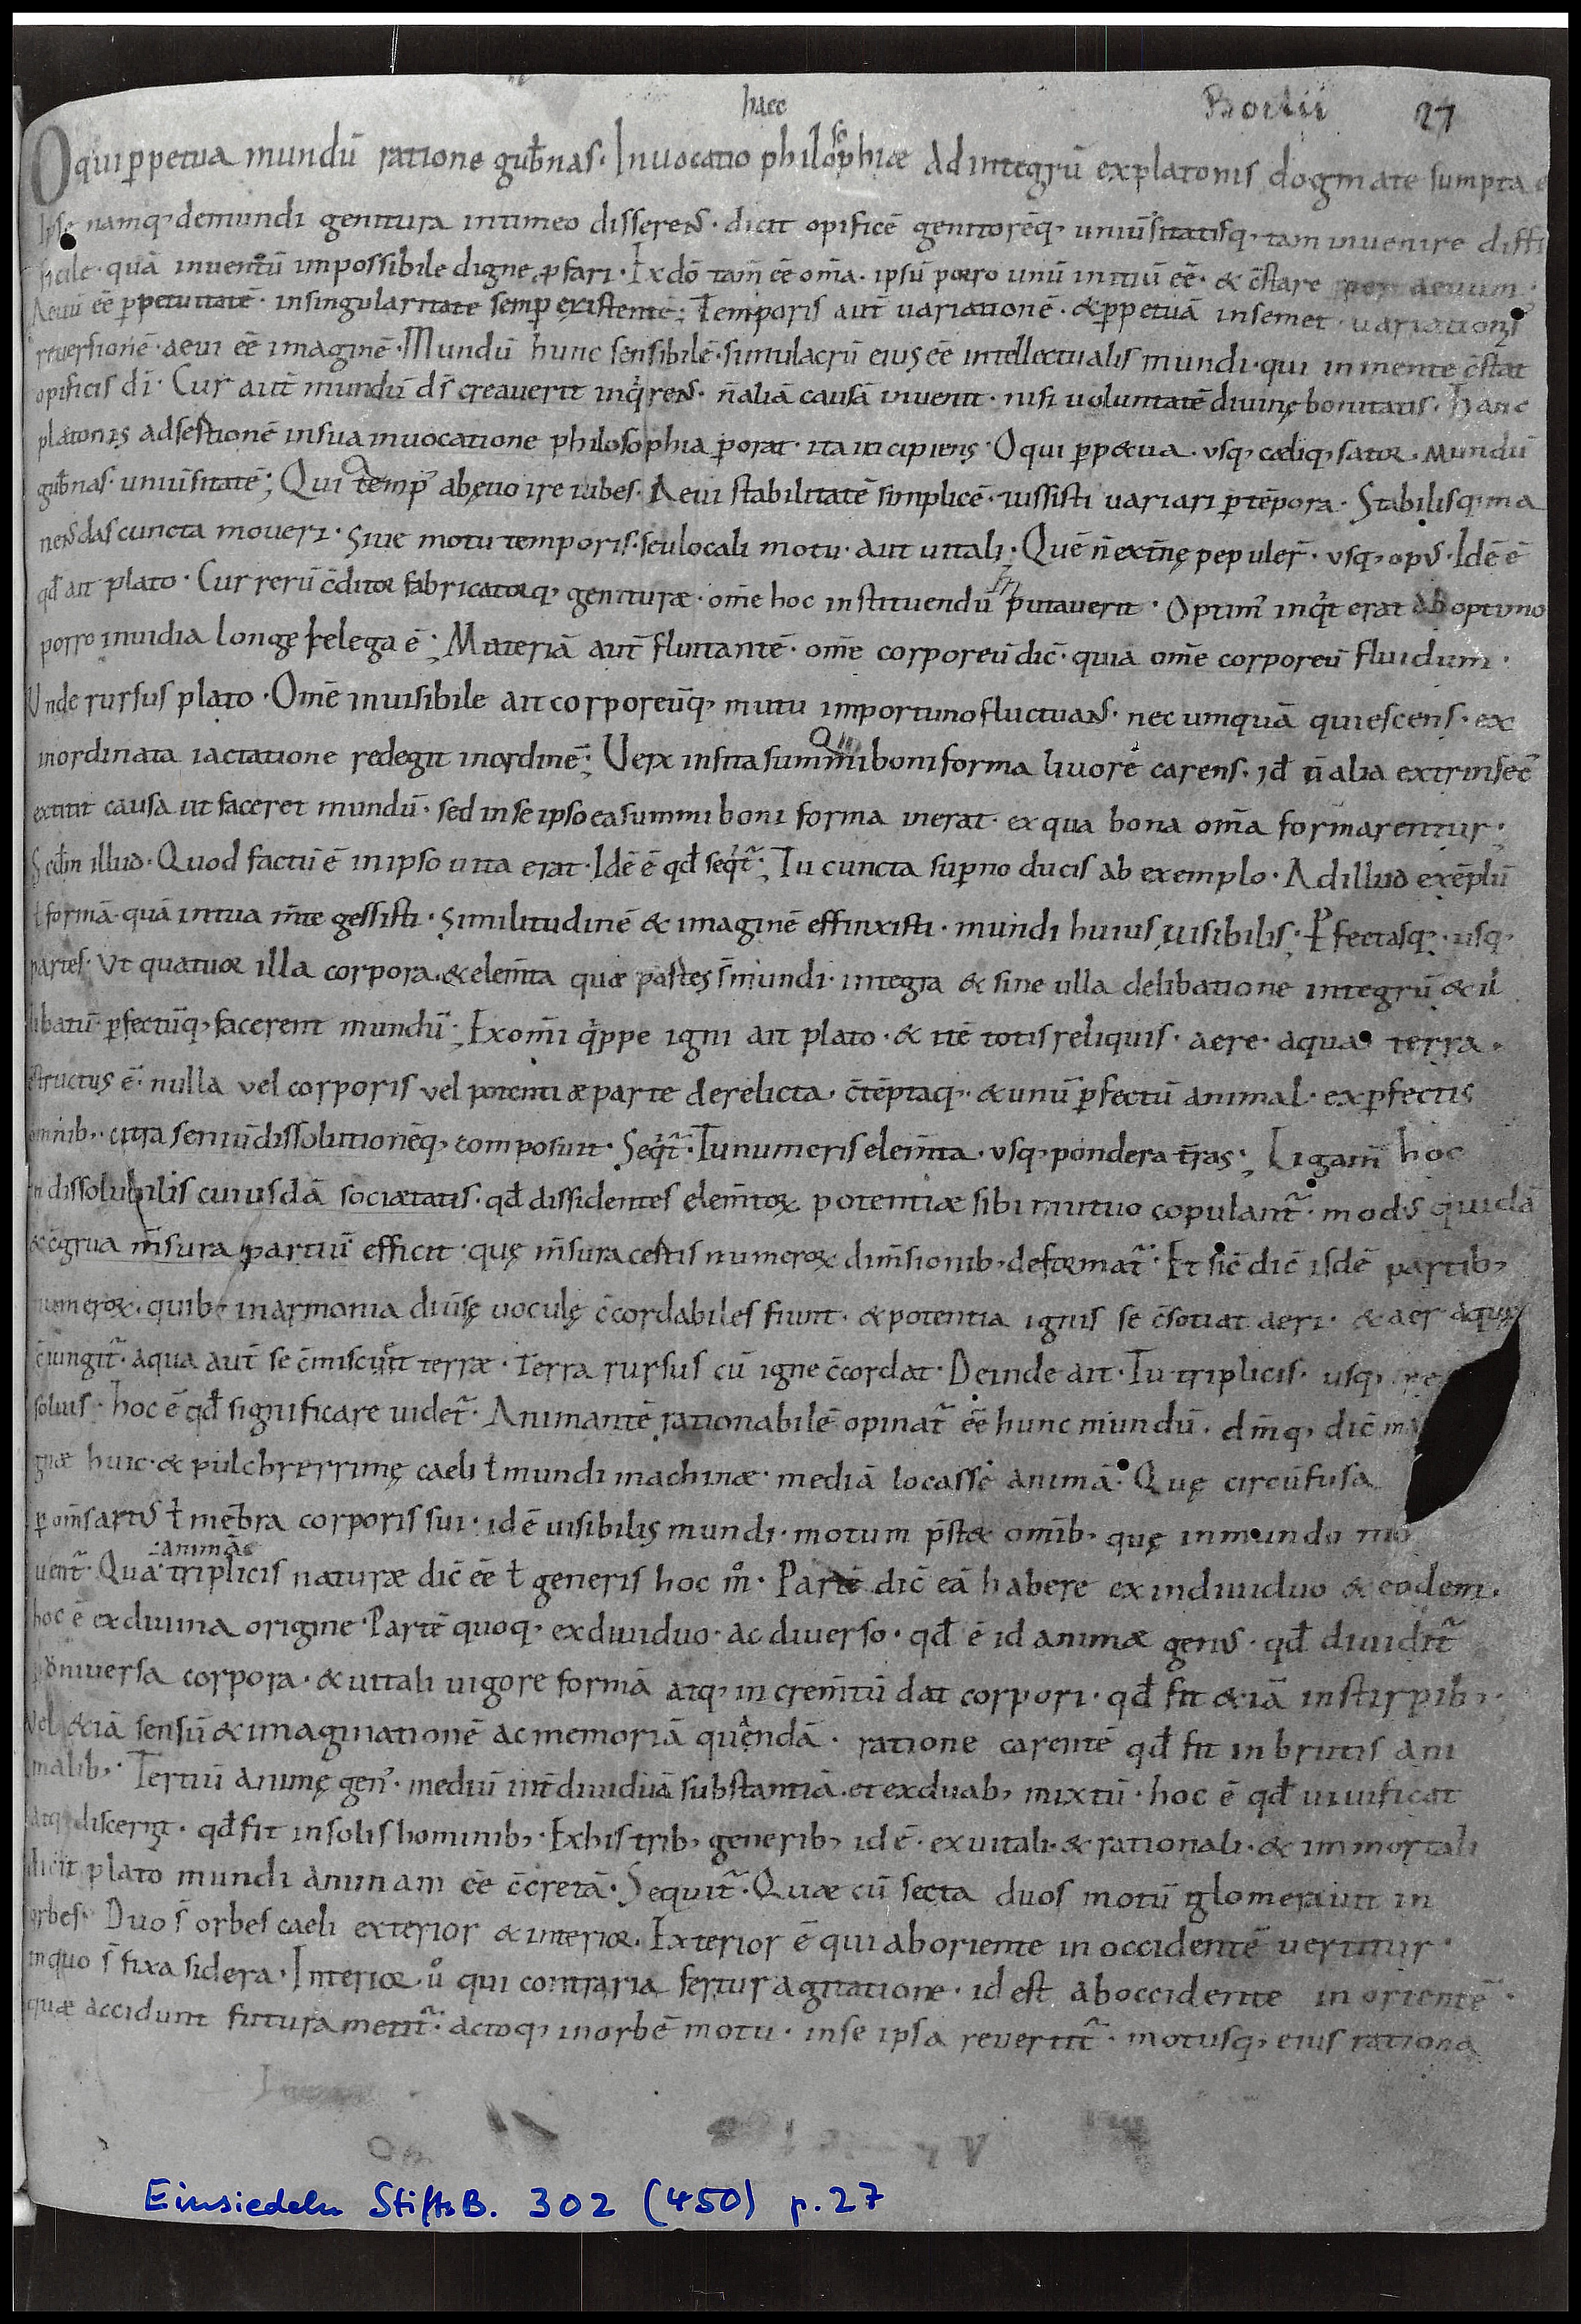 haec
Boetii 27
O qui ppetua mundū ratione gub̄nas. Inuocatio philosophiae ad integrū ex platonis dogmate sumpta
Ipse namq; de mundi genitura in timeo disserens. dicit opificē genitorēq; uniūsitatisq; tam inuenire diffi
ficile. quā inuentū impossibile digne pfari. Ex dō tam̄ eē om̄a. ipsū porro unū initiū eē. & c̄stare per aeuum.
Aeuū eē ppetuitatē. in singularitate semp existentē; Temporis aut̄ uariationē. & ppetuā in semet uariationis
reuersionē. aeui eē imaginē. Mundū hunc sensibilē. simulacrū eius eē intellectualis mundi. qui in mente c̄stat
opificis dī. Cur aut̄ mundū ds̄ creauerit inq̇rens. n̄ aliā causā inuenit. nisi uoluntatē diuinę bonitatis. Hanc
platonis adsertionē in sua inuocatione philosophia porat. ita incipiens. O qui pp&ua. usq; caeliq; sator. Mundū
gub̄nas. uniūsitatē; Qui temp' ab ęuo ire iubes. Aeui stabilitatē simplicē. iussisti uariari p tēpora. Stabilisq; ma
nens das cuncta moueri. Siue motu temporis. seu locali motu. aut uitali; Quē n̄ ext̄nę pepuler̄. usq; opus. Idē ē
qđ ait plato. Cur rerū c̄ditor fabricatorq; geniturae. om̄e hoc instituendū putauerit. Optim' inq̇t erat ab optimo
porro inuidia longe relega ē; Materiā aut̄ fluitantē. om̄e corporeū dic̄. quia om̄e corporeū fluidum.
Unde rursus plato. Om̄e inuisibile ait corporeūq; mutu importuno fluctuans. nec umquā quiescens. ex
inordinata iactatione redegit in ordinē; Uerꝝ insita summi boni forma liuore carens. id n̄ alia extrinsec̄
extitit causa ut faceret mundū. sed in se ipso ea summi boni forma inerat. ex qua bona om̄a formarentur.
Scdm illud. Quod factū ē in ipso uita erat. Idē ē qđ seq̇t̄; Tu cuncta supno ducis ab exemplo. Ad illud exēplū
ł formā. quā in tua m̄te gessisti. Similitudinē & imaginē effinxisti. mundi huius uisibilis. Pfectasq; usq;
partes. Ut quatuor illa corpora & elem̄ta quae partes s̄ mundi. integra & sine ulla delibatione integrū & il
libatū pfectūq; facerent mundū; Ex om̄i q̇ppe igni ait plato. & itē totis reliquis. aere. aqua terra.
structus ē. nulla uel corporis uel potentiae parte derelicta. c̄tēptaq; & unū pfectū animal. ex pfectis
omnib; citra seniū dissolutionēq; composuit. Seq̇t̄. Tu numeris elem̄ta. usq; pondera t̄ras; Ligam̄ hoc
indissolubilis cuiusdā sociaetatis. qđ dissidentes elem̄torꝝ potentiae sibi mutuo copulant̄. modus quidā
& c̄grua m̄sura partiū efficit. quę m̄sura certis numerorꝝ dim̄sionib; deformat̄. Et sic̄ dic̄ isdē partib;
numerorꝝ. quib; in armonia diūsę uoculę c̄cordabiles fiunt. & potentia ignis se c̄sotiat aeri. & aer aquę
c̄iungit̄. aqua aut̄ se c̄miscuit terrae. Terra rursus cū igne c̄cordat. Deinde ait. Tu triplicis. usq;
soluis. Hoc ē qđ significare uidet̄. Animantē rationabilē opinat̄ eē hunc mundū. dm̄q; dic̄ ma
gnae huic. & pulcherrimę caeli ł mundi machinae. mediā locasse animā. Quę circūfusa
p om̄s artus ł mēbra corporis sui. id ē uisibilis mundi. motum pst& omib; quę in mundo mo
animae
uent̄. Quā triplicis naturae dic̄ eē ł generis hoc m̊. Partē dic̄ eā habere ex indiuiduo & eodem.
hoc ē ex diuina origine. Partē quoq; ex diuiduo. ac diuerso. qđ ē id animae genus. qđ diuidit̄
p uniuersa corpora. & uitali uigore formā atq; increm̄tū dat corpori. qđ fit &iā in stirpib;
Vel &iā sensū & imaginationē ac memoriā quēndā. ratione carentē qđ fit in brutis ani
malib; Tertiū animę gen'. mediū int̄ diuiduā substantiā. et ex duab; mixtū. hoc ē qđ uiuificat
atq; discernit. qđ fit in solis hominib; Ex his trib; generib; id ē. ex uitali. & rationali. & immortali
dicit plato mundi animam eē c̄cretā. Sequit̄. Quae cū secta duos motū glomerauit in
orbes. Duo s̄ orbes caeli exterior & interior. Exterior ē qui ab oriente in occidentē uertitur.
in quo s̄ fixa sidera. Interior ů qui contraria fertur agitatione. id est ab occidente in orientē.
quae accidunt futura metit̄. actoq; in orbē motu. in se ipsa reuertit̄. motusq; eius rationa
Einsiedeln StiftsB. 302 (450) p. 27